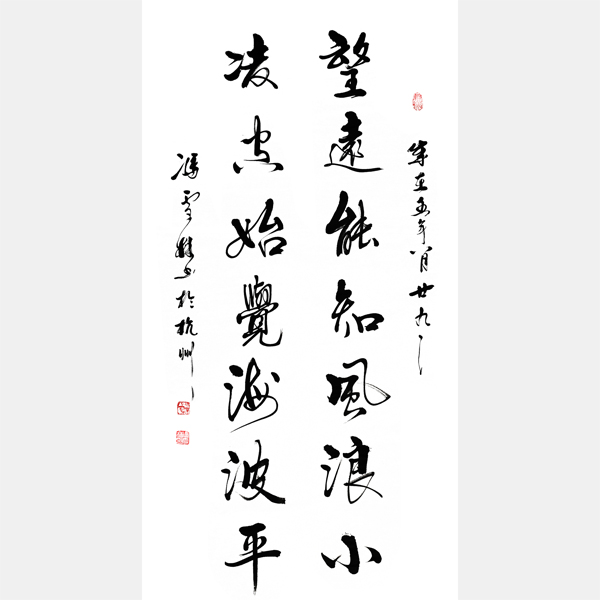 歲在年八月廿九
望遠能知風浪小
凌空始覺海波平
馮雪書於杭州